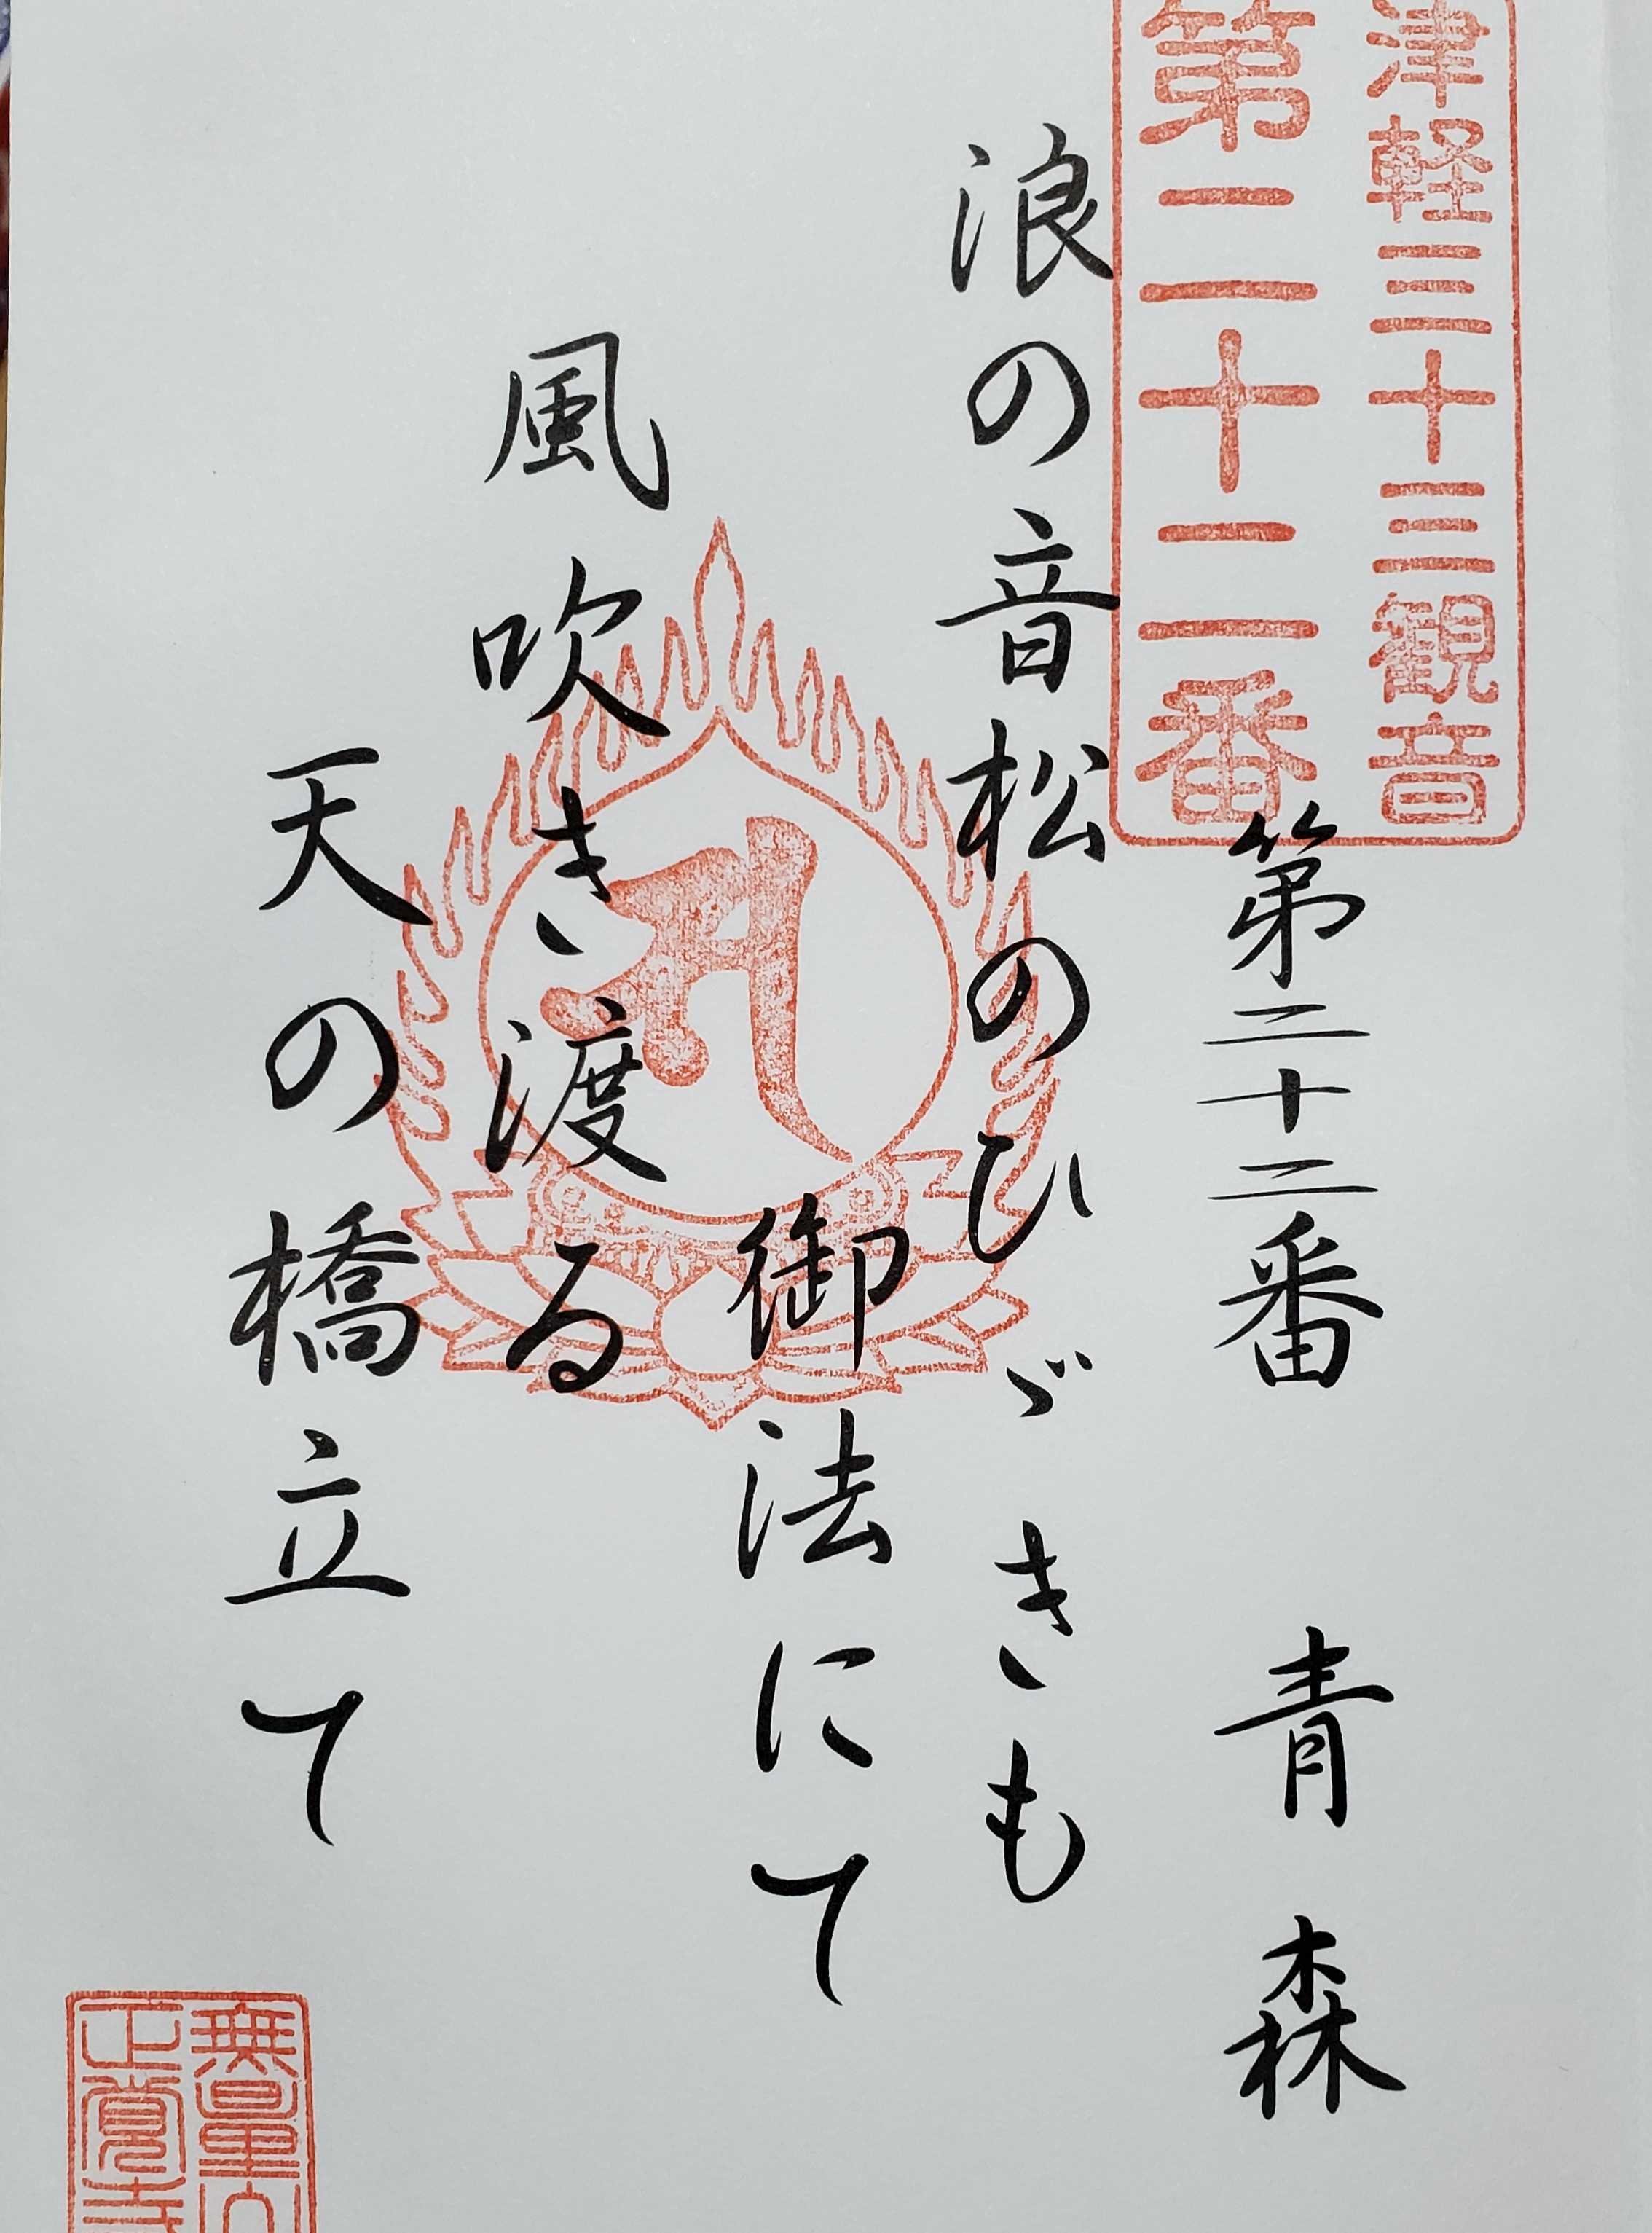 津軽三十三観音
第二十二番
第二十二番 青森
浪の音松のひゞきも
御法にて
風吹き渡る
天の橋立て
無量山
正覚寺